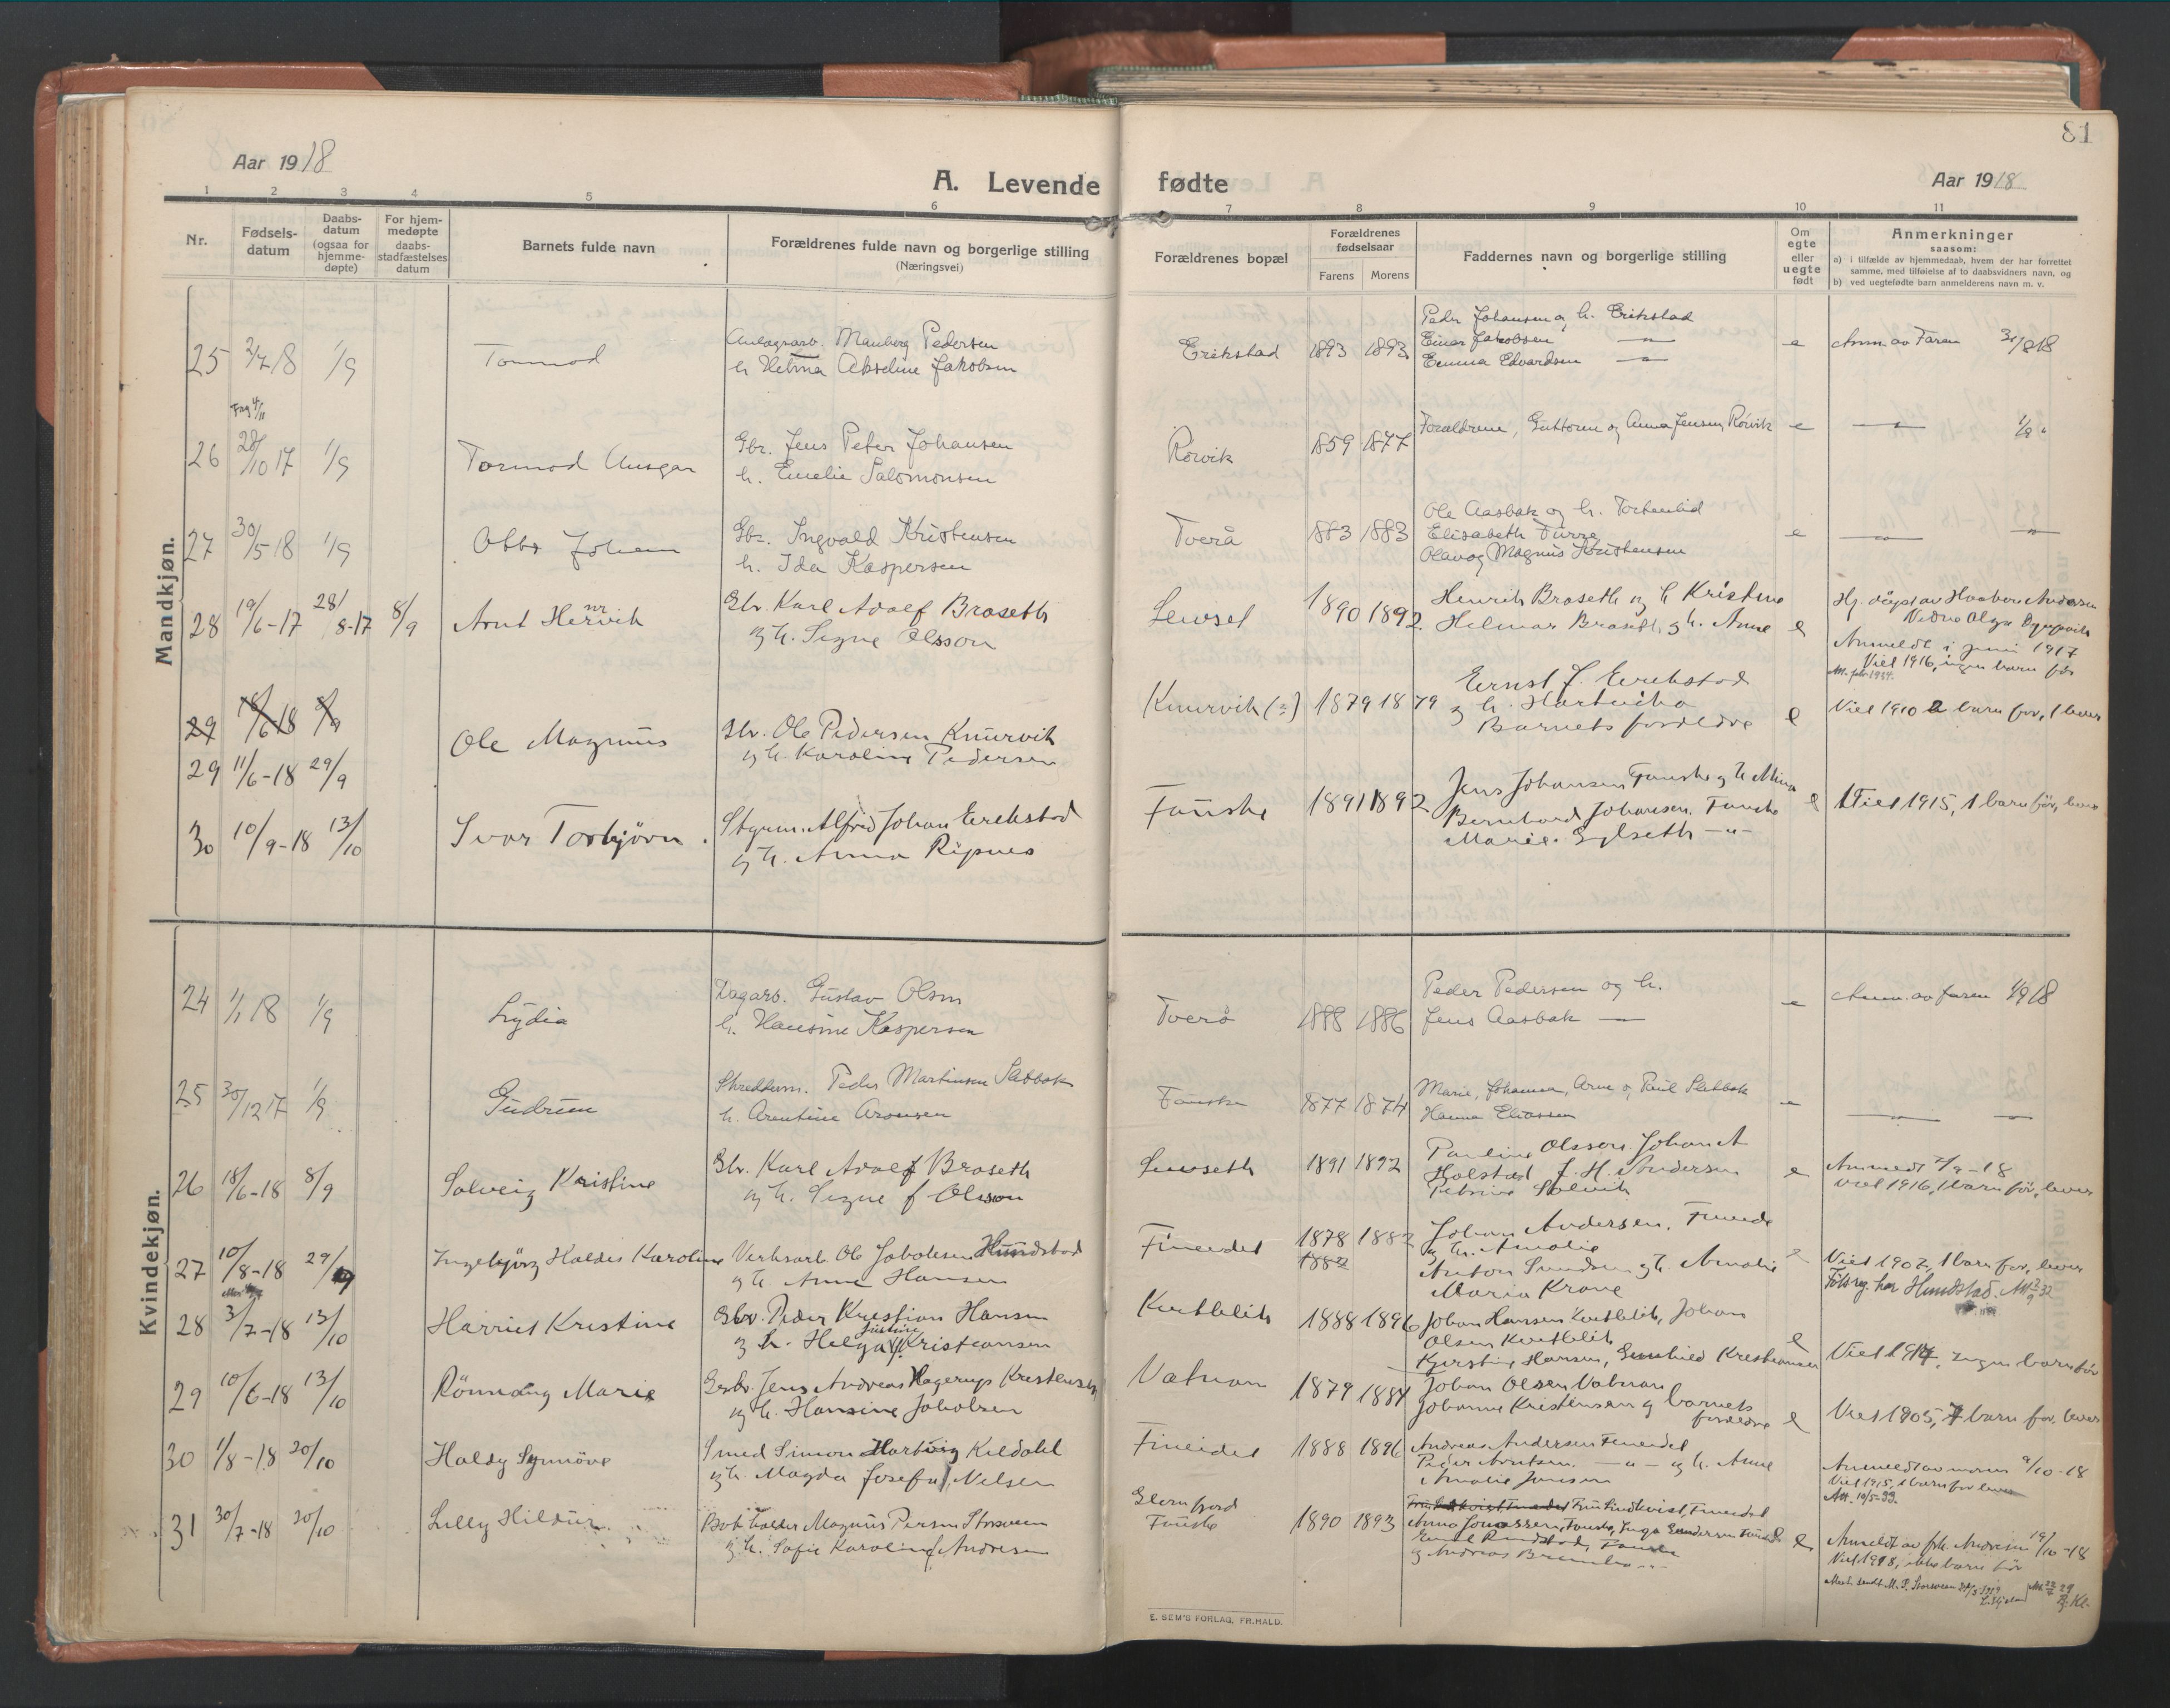 81
Aar 1918
A. Levende fødte
Aar 1918
1 2 3 4 5 6 7 8 9 10 11
Nr.
Fødsels-
datum
Daabs-
datum
(ogsaa for
hjemme-
døpte)
For hjem-
medøpte
daabs-
stadfæstelses
datum
Barnets fulde navn
Forældrenes fulde navn og borgerlige stilling
(Næringsvei)
Forældrenes bopæl
Forældrenes
fødselsaar
Farens Morens
Faddernes navn og borgerlige stilling
Om
egte
eller
uegte
født
Anmerkninger
saasom:
a) i tilfælde av hjemmedaab, hvem der har forrettet
samme, med tilføielse af to daabsvidners navn, og
b) ved uegtefødte barn anmelderens navn m. v.
Mandkjøn.
25 2/7 18 1/9 Tormod
Pedersen
h. Helma Akseline Jakobsen
Erikstad 1893 1893
Peder Johansen og h. Erikstad
Einar Jakobsen —"—
Emma Edvardsen —"—
e Anm. av Faren 31/8 18
26 28/10 17 1/9 Tormod Ansgar
Gbr. Jens Peter Johansen
h. Emelie Salomonsen
Rørvik 859 1877
Forældrene, Guttorm og Anna Jensen, Rørvik
e —"— 1/9 "
27 30/5 18 1/9 Johan
Gbr. Ingvald Kristensen
h. Ida Kaspersen
Tverå 883 1883
Ole Aasbak og h.
Elisabeth Furre
Olav og Magnus Kristensen
e —"— —"—
28 19/6-17 28/8-17 8/9 Arnt
Gbr. Karl Adolf Braseth
og h. Signe Olsson
1890 1892
Henrik Braseth og h Kristine
Helmer Braseth og h. Anne
e
Anmeldt i juni 1917
Viet 1916, ingen barn før
29 18/6-18 8/9
29 11/6-18 29/9 Ole Magnus
Gbr. Ole Pedersen Knurvik
og h. Karoline Pedersen
Knurvik (?) 1879 1879
Ernst J. Erikstad
og h. Hartvikka
Barnets foreldre
e Viet 1910 2 barn før, 1 lever
30 10/9-18 13/10 Ivar Torbjörn
Styrm. Alfred Johan Erikstad
og h. Anna Ripnes
Fauske 1891 1892
Jens Johansen Fauske og h Mina
Bernhard Johansen. Fauske
Marie. Sylseth —"—
e Viet 1915, 1 barn før, lever
Kvindekjøn.
24 1/1 18 1/9 Lydia
Dagarb. Gustav Olsen
h. Hansine Kaspersen
Tverå 1888 1886
Peder Pedersen og h.
Jens Aasbak —
e Anm. av faren 1/9 18
25 30/12 17 1/9 Gudrun
Skredderm. Peder Martinsen Slabbak
h. Arentine Aronsen
Fauske 1877 1874
Marie, Johanna, Arne og Paul Slabbak
Hanna Eliassen
e —"— —"—
26 18/6-18 8/9 Solveig Kristine
Gbr. Karl Adolf Braseth
og h. Signe f Olsson
1891 1892
Pauline Olsson, Johan A
Holstad J. H. Andersen
Petrine Solvik
e
Viet 1916, 1 barn før, lever
27 10/8-18 29/9 Ingebjörg Haldis Karoline
Verksarb. Ole Jakobsen Hundstad
og h. Anne Hansen
Fineidet 1878 1882
1882
Johan Andersen. Fineide
og h. Amalie
Anton Simonsen og h. Amalie
Maria Krane
e Viet 1902, 1 barn før, lever
28 3/7-18 13/10 Harriet Kristine
Gbr. Peder Kristian Hansen
og h. Helga Justine Kristiansen
Kvitblik 1888 1896
Johan Hansen Kvitblik, Johan
Olsen Kvitblik
Kjerstine Hansen, Gunhild Kristiansen
e Viet 1914, ingen barn før
29 10/6-18 13/10 Rönnaug Marie
Gbr. Jens Andreas Hagerup Kristensen
og h. Hansine Jakobsen
Vatnan 1879 1884
Johan Olsen Vatnan
Johanne Kristensen og barnets
foreldre
e Viet 1905, 7 barn før, lever
30 1/8-18 20/10 Haldy Synnöve
Smed Simon Hartvig Kildahl
og h. Magda Josefa Nilsen
Fineidet 1888 1896
Andreas Andersen Fineidet
Peder Arntsen. —"— og h. Anne
Amalie Jensen
Anmeldt av moren 9/10-18
Viet 1915, 1 barn før lever
31 30/7-18 20/10 Lilly Hildur
Magnus Persen Storsveen
og h. Sofie Karoline f Andresen
Glomfjord
Fauske 1890 1893
Fru Lindkvist, Fineidet
e
Viet 1918, ikke barn før
E. SEM'S FORLAG, FR.HALD.